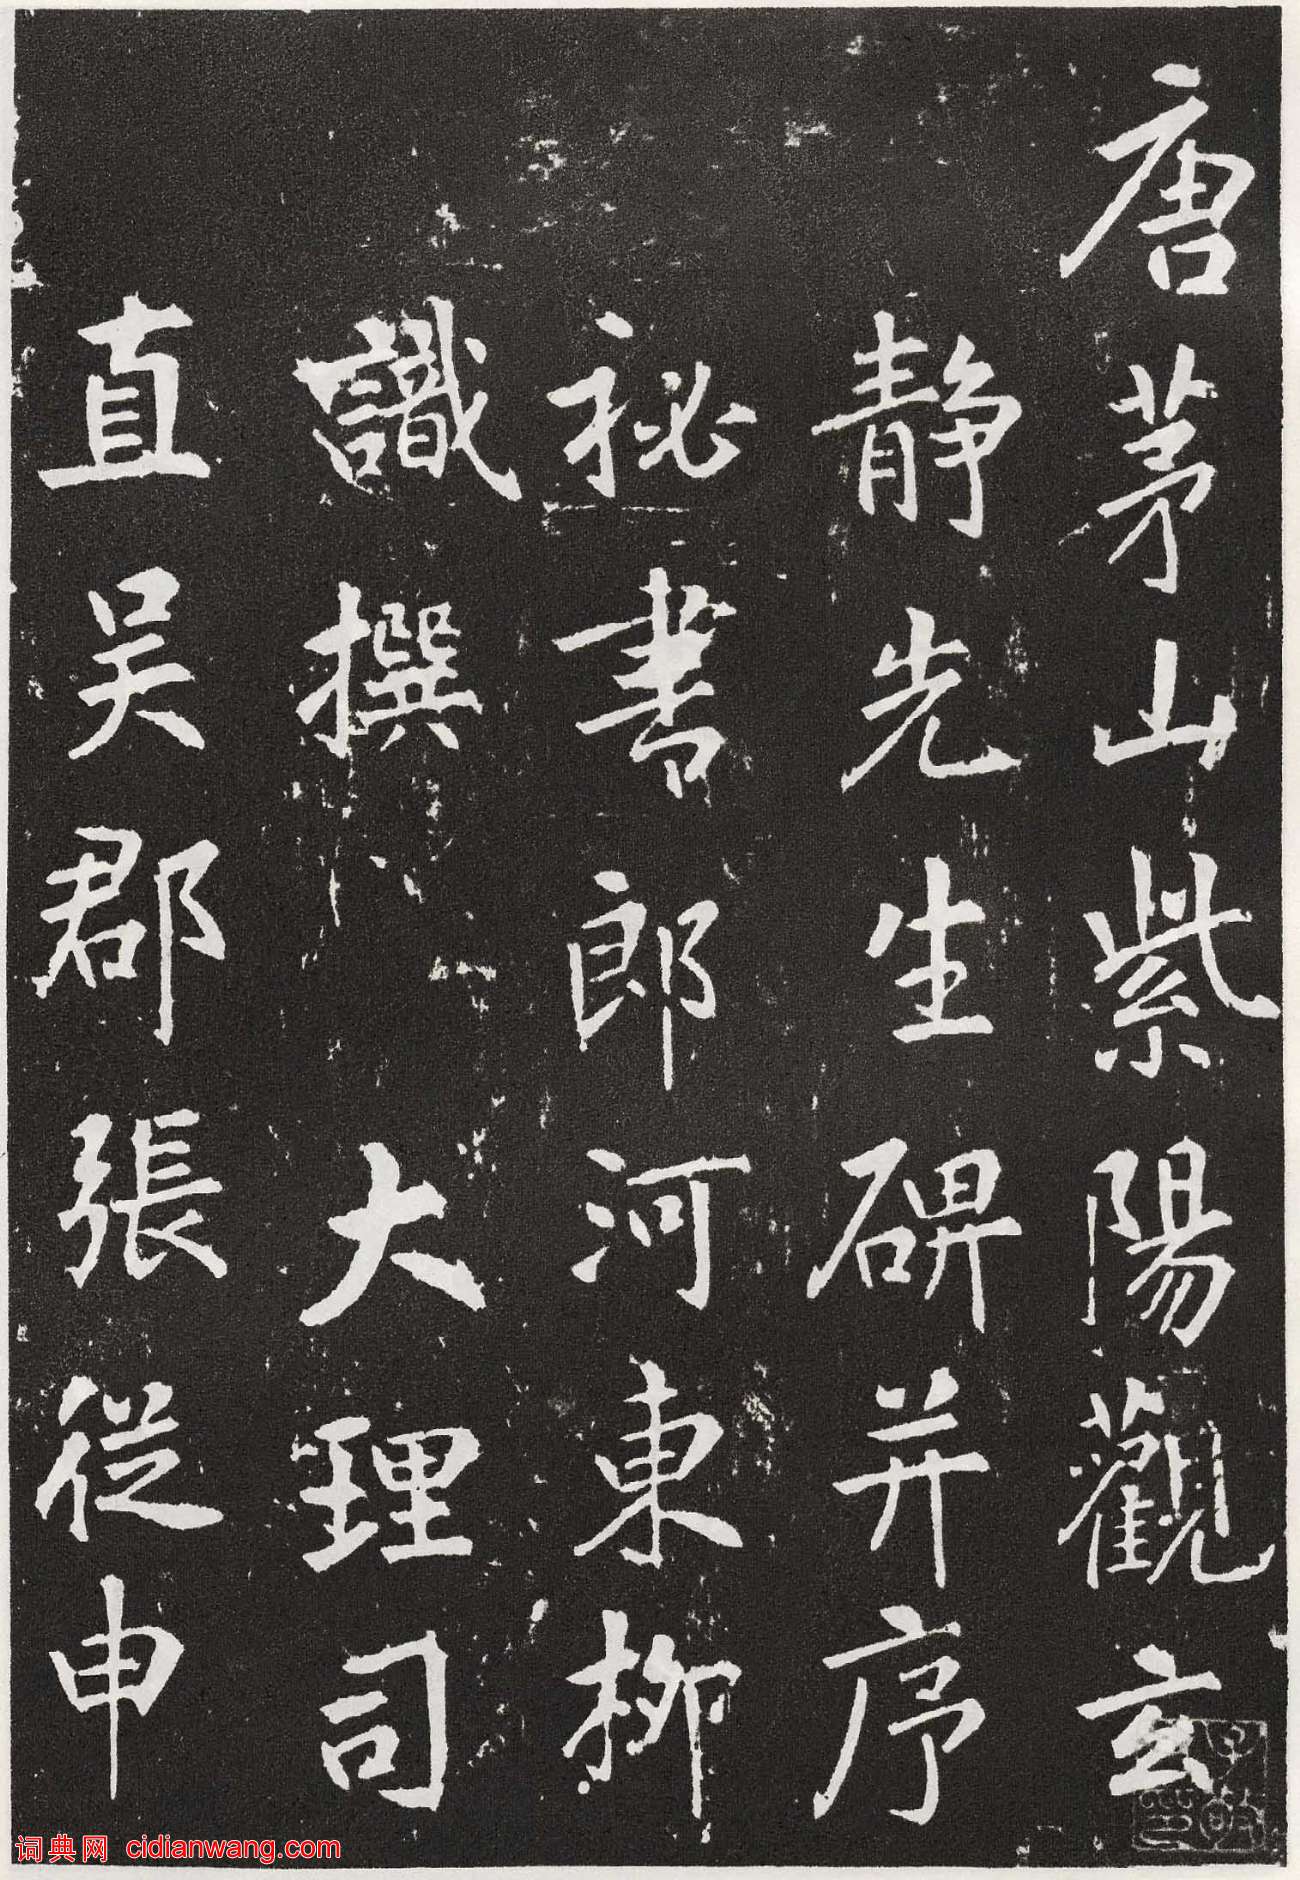 唐茅山紫陽觀玄
靜先生碑并序
祕書郎河東柳
識撰 大理司
直吳郡張從申
词典网 cidianwang.com